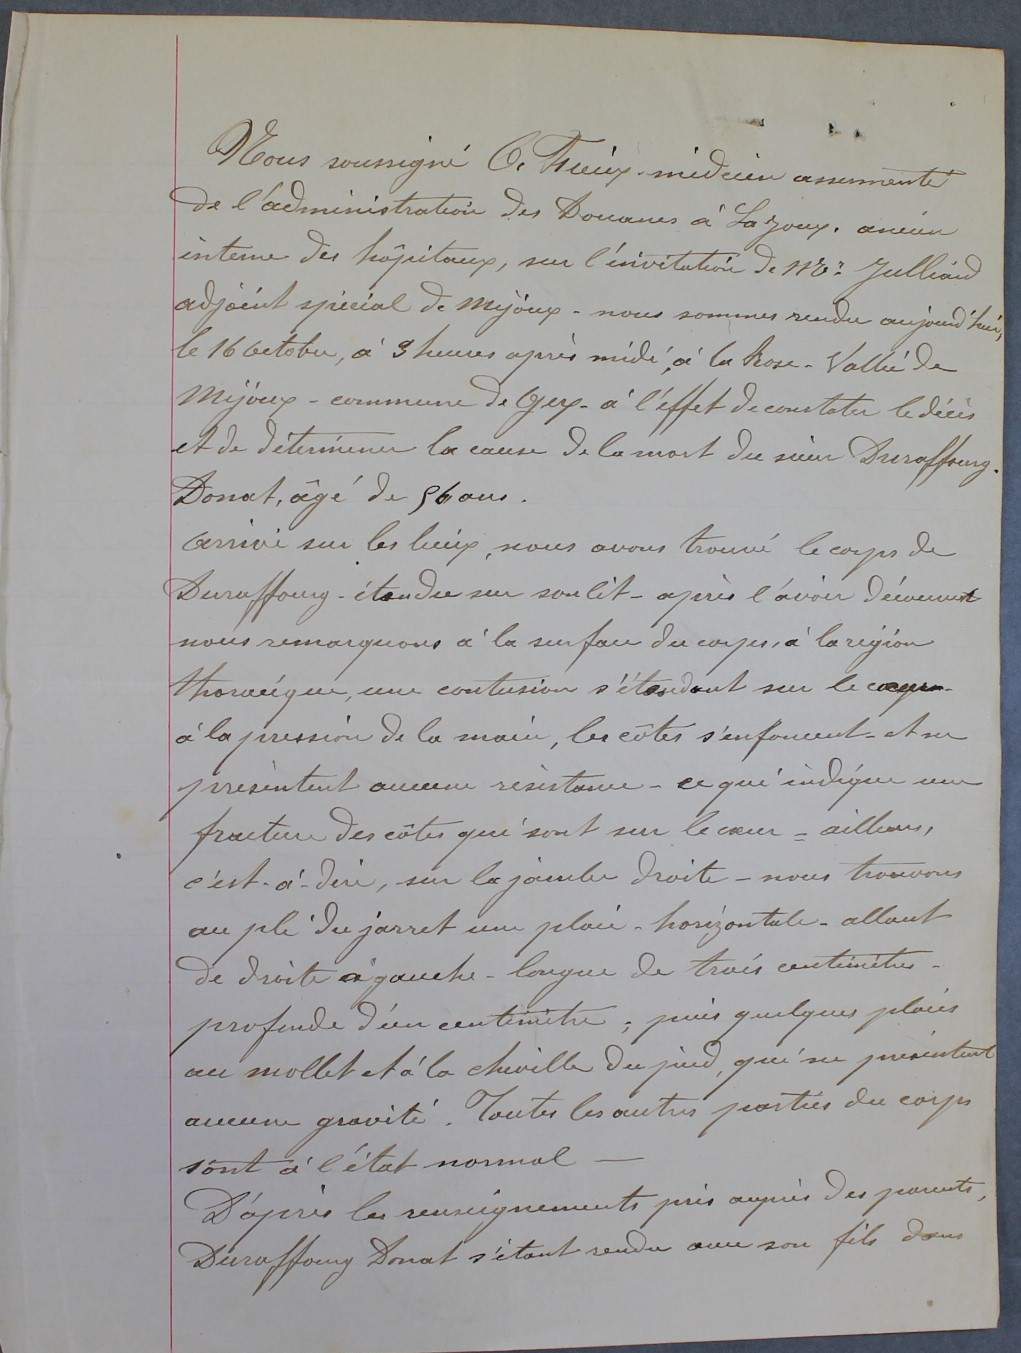 Nous soussigné C. Thieux. médecin assermenté
de l'administration des Douanes à Lajoux. ancien
interne des hôpitaux, sur l'invitation de Mr. Julliard
adjoint spécial de Mijoux - nous sommes rendu aujourd'hui,
le 16 Octobre, à 3 heures après midi, à la Rose - Vallée de
Mijoux - commune de Gex - à l'effet de constater le décès
et de déterminer la cause de la mort du sieur Duraffourg.
Donat, âgé de 56 ans.
Arrivé sur les lieux, nous avons trouvé le corps de
Duraffourg - étendu sur son lit - après l'avoir découvert
nous remarquons à la surface du corps, à la région
thoracique, une contusion s'étendant sur le cœur -
à la pression de la main, les côtes s'enfoncent - et ne
présentent aucune résistance - ce qui indique une
fracture des côtes qui sont sur le cœur = ailleurs,
c'est-à-dire, sur la jambe droite - nous trouvons
au pli du jarret une plaie - horizontale - allant
de droite à gauche - longue de trois centimètres -
profonde d'un centimètre ; puis quelques plaies
au mollet et à la cheville du pied, qui ne présentent
aucune gravité. Toutes les autres parties du corps
sont à l'état normal —
D'après les renseignements pris auprès des parents,
Duraffourg Donat s'étant rendu avec son fils dans